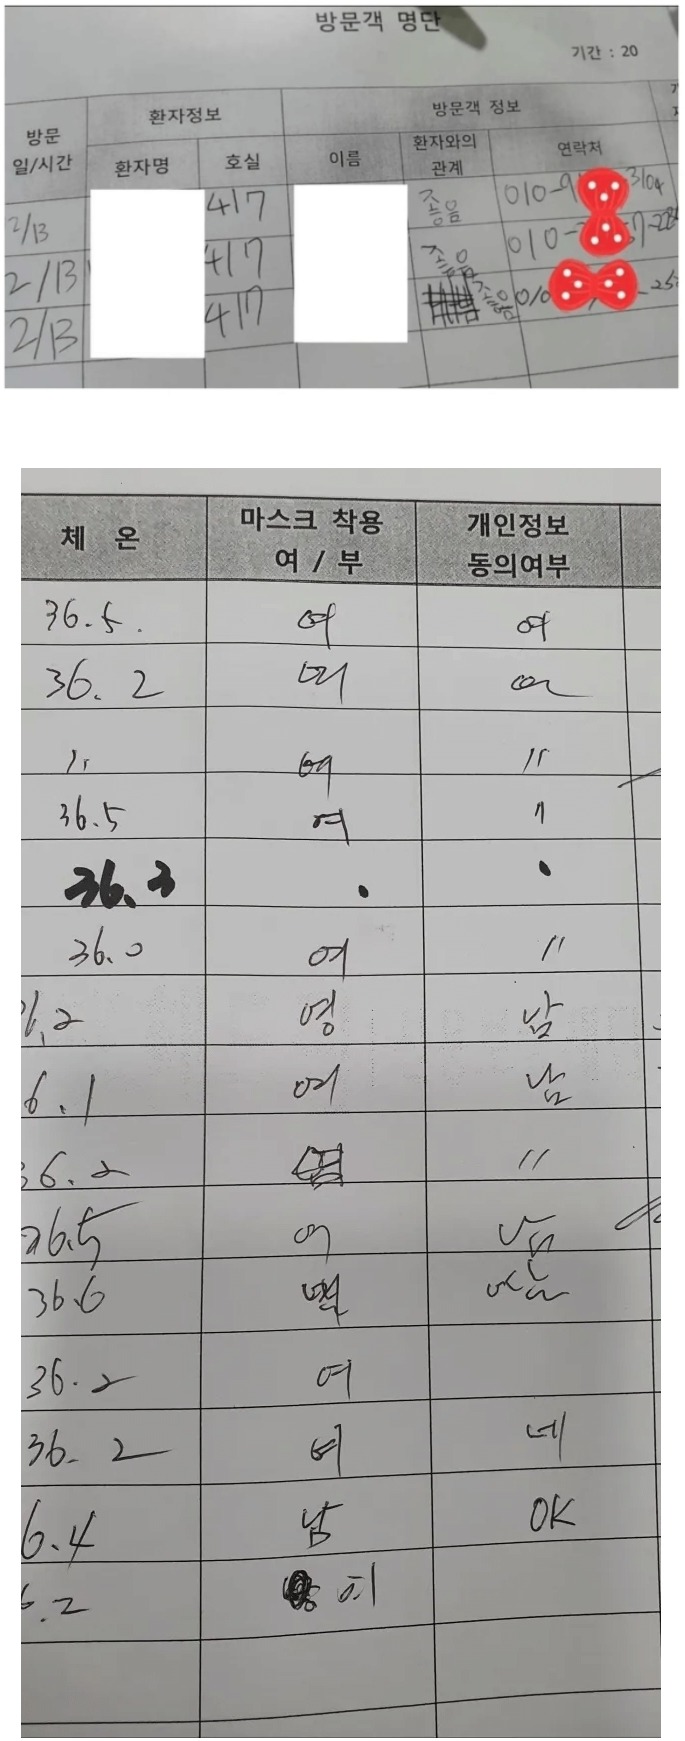 방문객 명단
기간 : 20
방문 일/시간 환자정보 방문객 정보
환자명 호실 이름 환자와의 관계 연락처
2/13 417 좋음 010-9 3104
2/13 417 좋음 010-
2/13 417 좋음 010
체 온 마스크 착용 여 / 부 개인정보 동의여부
36.5. 여 여
36.2 여 여
〃 여 〃
36.5 여 〃
36.3 . .
36.0 여 〃
6.2 영 남
6.1 여 남
36.2 〃
36.5 여 남
36.6
36.2 여
36.2 여 네
6.4 남 OK
6.2